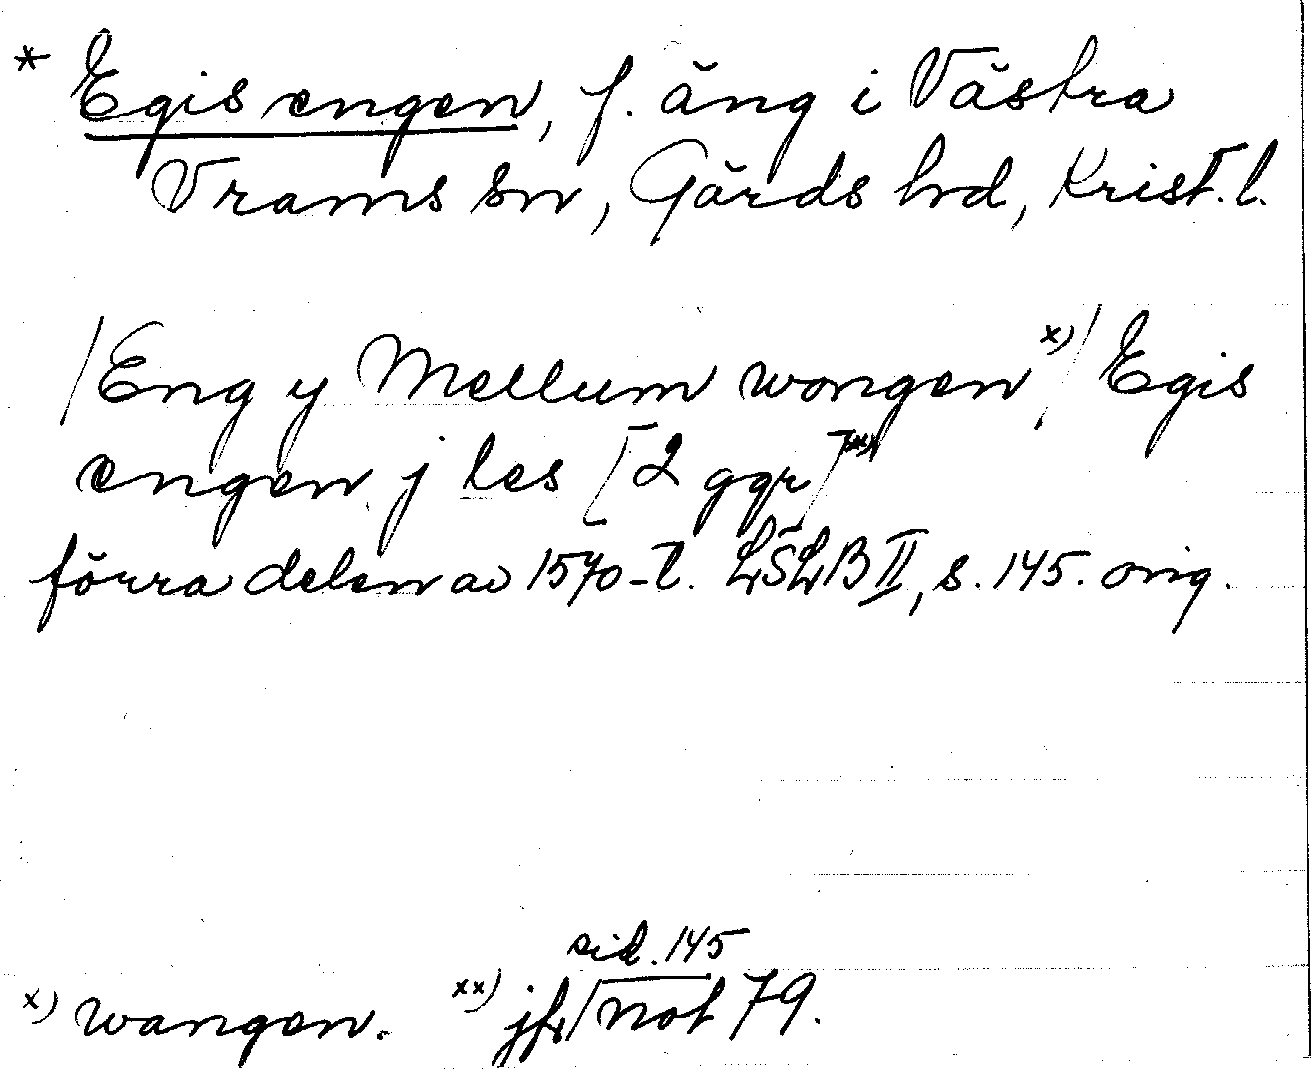 * Egis engen, f. äng i Västra
Vrams sn, Gärds hd, Krist. l.
/Eng y Mellum wongen x)/ Egis
engen j les [2 ggr] xx)
förra delen av 1570-t. LSLB II, s. 145. orig.
x) wangen. xx) jfr sid. 145 not 79.